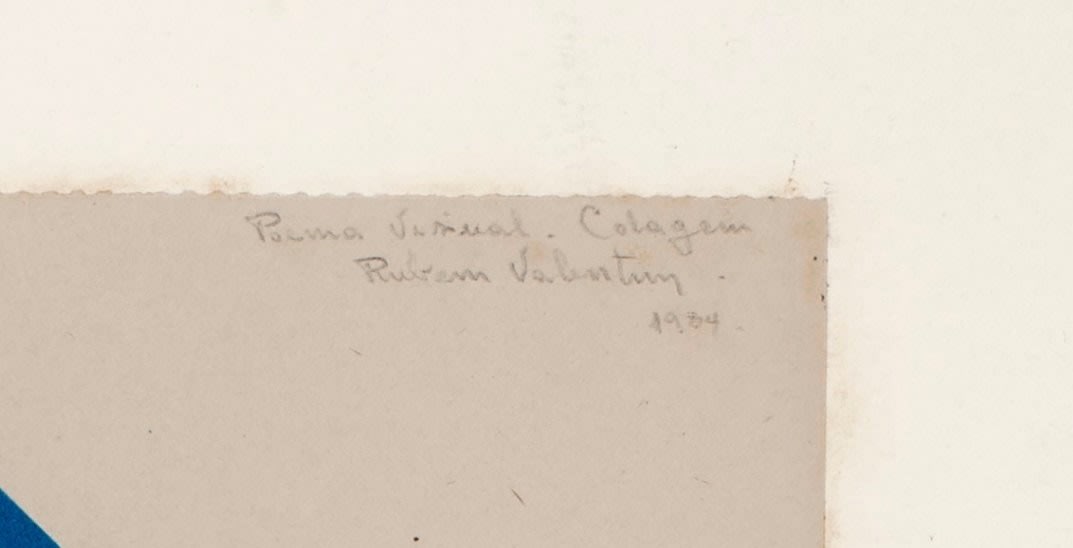 Poema Visual . Colagem
Rubem Valentim .
1984 .